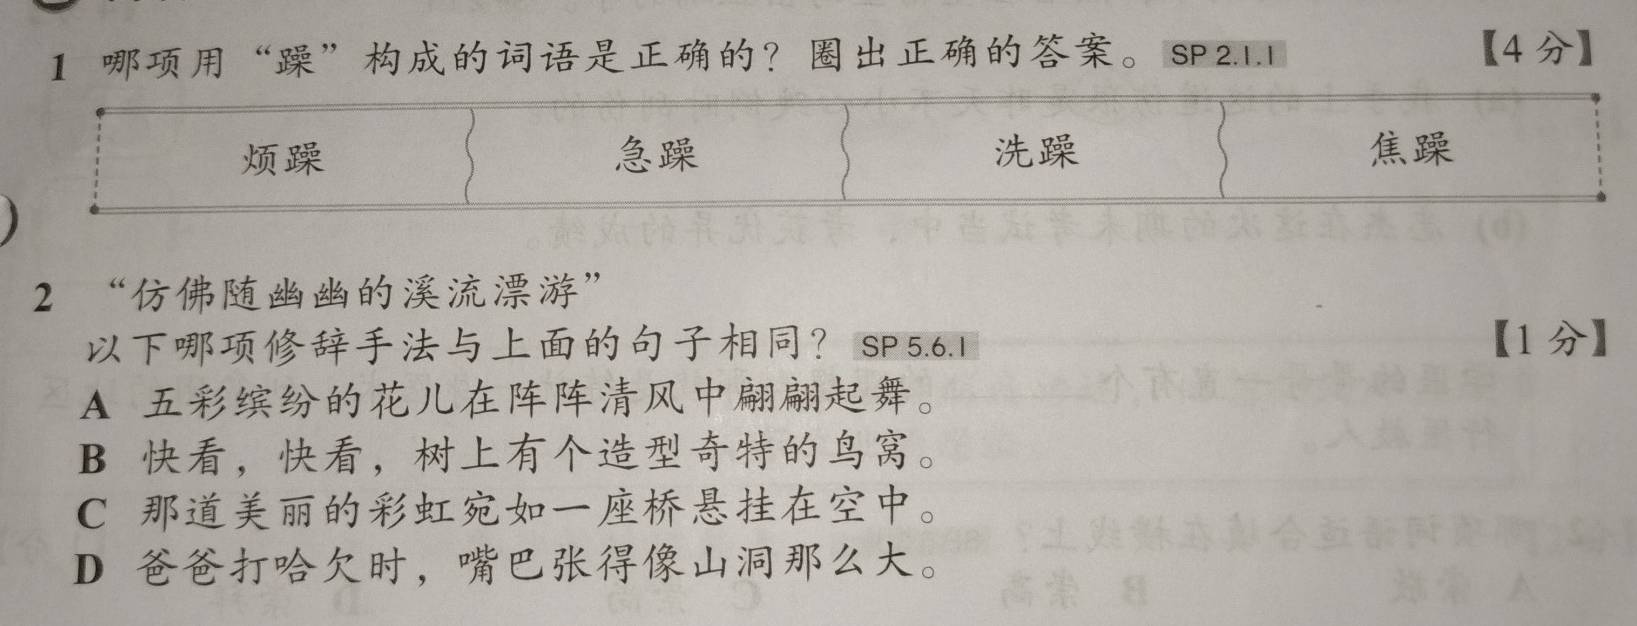 1 哪项用“躁”构成的词语是正确的？圈出正确的答案。 SP 2.1.1 【4 分】
烦躁 急躁 洗躁 焦躁
2 “仿佛随幽幽的溪流漂游”
以下哪项修辞手法与上面的句子相同？ SP 5.6.1 【1 分】
A 五彩缤纷的花儿在阵阵清风中翩翩起舞。
B 快看，快看，树上有个造型奇特的鸟窝。
C 那道美丽的彩虹宛如一座桥悬挂在空中。
D 爸爸打哈欠时，嘴巴张得像山洞那么大。